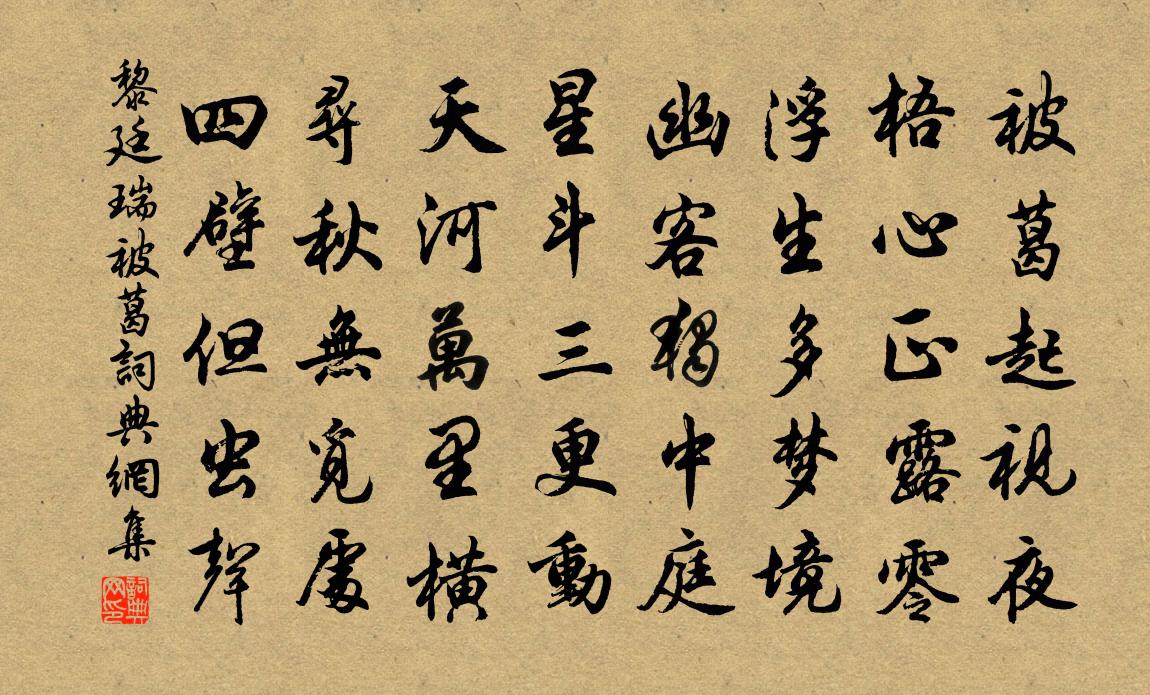 被葛起視夜
梧心正露零
浮生多梦境
幽客獨中庭
星斗三更動
天河萬里橫
尋秋無覓處
四壁但虫聲
黎廷瑞被葛詞典網集
詞典网印